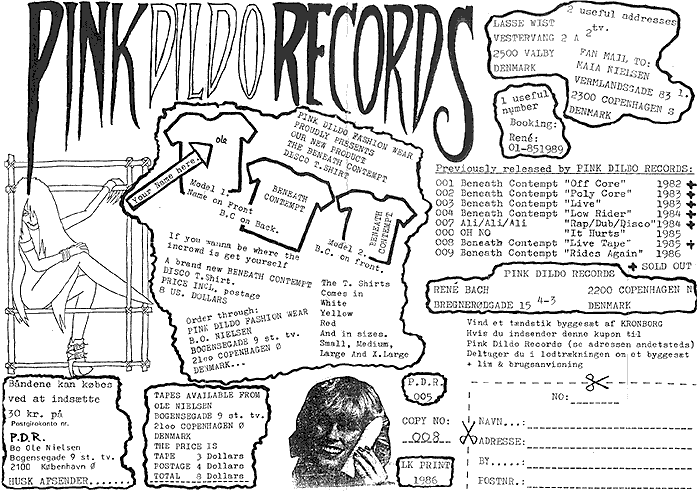 PINK DILDO RECORDS
2 useful addresses
LASSE WIST
VESTERVANG 2 A 2tv.
2500 VALBY
DENMARK
FAN MAIL TO:
MAIA NIELSEN
VERMLANDSGADE 83 1.
2300 COPENHAGEN S
DENMARK
1 useful
number
Booking:
René:
01-851989
PINK DILDO FASHION WEAR
PROUDLY PRESENTS
OUR NEW PRODUCT
THE BENEATH CONTEMPT
DISCO T.SHIRT
ole
Your Name here.
Model 1.
Name on Front
B.C on Back.
BENEATH
CONTEMPT
BENEATH
CONTEMPT
Model 2.
B.C. on front.
If you wanna be where the
incrowd is get yourself
A brand new BENEATH CONTEMPT
DISCO T.Shirt.
PRICE INCL. postage
8 US. DOLLARS
Order through:
PINK DILDO FASHION WEAR
B.O. NIELSEN
BOGENSEGADE 9 st. tv.
2100 COPENHAGEN Ø
DENMARK...
The T. Shirts
Comes in
White
Yellow
Red
And in sizes.
Small, Medium,
Large And X.Large
Previously released by PINK DILDO RECORDS:
001 Beneath Contempt "Off Core" 1982 +
002 Beneath Contempt "Poly Core" 1983 +
003 Beneath Contempt "Live" 1983 +
004 Beneath Contempt "Low Rider" 1984 +
007 Ali/Ali/Ali "Rap/Dub/Disco" 1984 +
006 OH NO "It Hurts" 1985
008 Beneath Contempt "Live Tape" 1985 +
009 Beneath Contempt "Rides Again" 1986
+ SOLD OUT
PINK DILDO RECORDS
RENÉ BACH 2200 COPENHAGEN N
BREGNERØDGADE 15 4-3 DENMARK
Vind et tændstik byggesæt af KRONBORG
Hvis du indsender denne kupon til
Pink Dildo Records (se adressen andetsteds)
Deltager du i lodtrækningen om et byggesæt
+ lim & brugsanvisning
NO:
NAVN...:
ADRESSE:
BY.....:
POSTNR.:
Båndene kan købes
ved at indsætte
30 kr. på
Postgirokonto nr.
P.D.R.
Bo Ole Nielsen
Bogensegade 9 st. tv.
2100 København Ø
HUSK AFSENDER.......
TAPES AVAILABLE FROM
OLE NIELSEN
BOGENSEGADE 9 st. tv.
2100 COPENHAGEN Ø
DENMARK
THE PRICE IS
TAPE 3 Dollars
POSTAGE 4 Dollars
TOTAL 8 Dollars
P.D.R.
005
COPY NO:
008
LK PRINT
1986